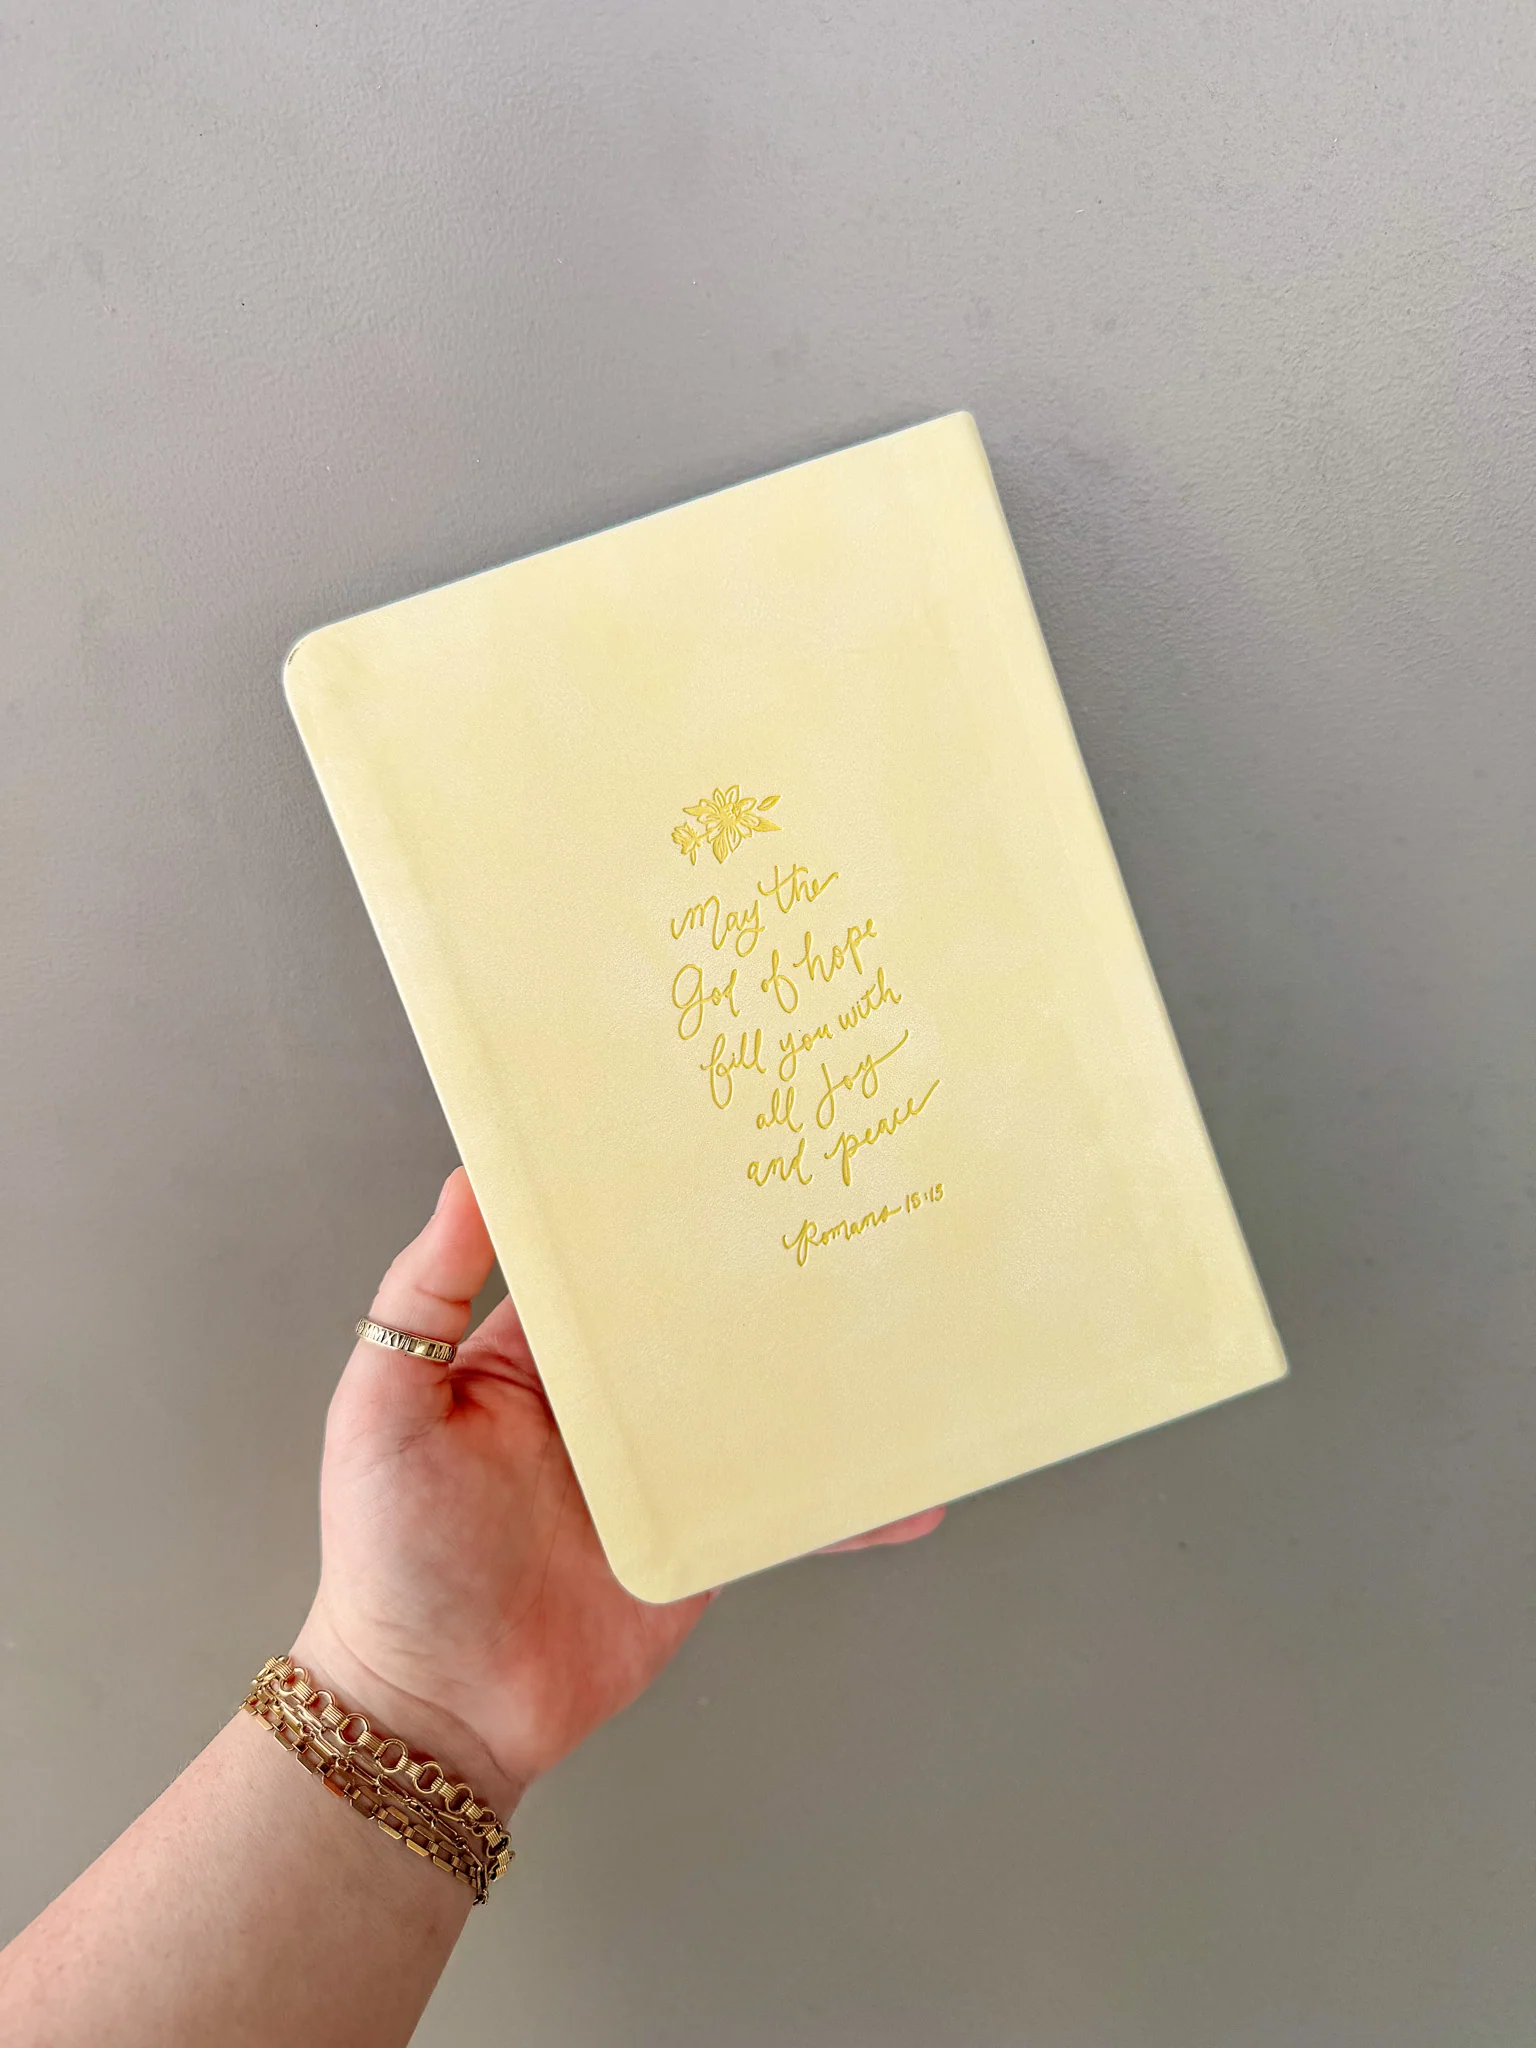 May the
God of hope
fill you with
all joy
and peace
Romans 15:13